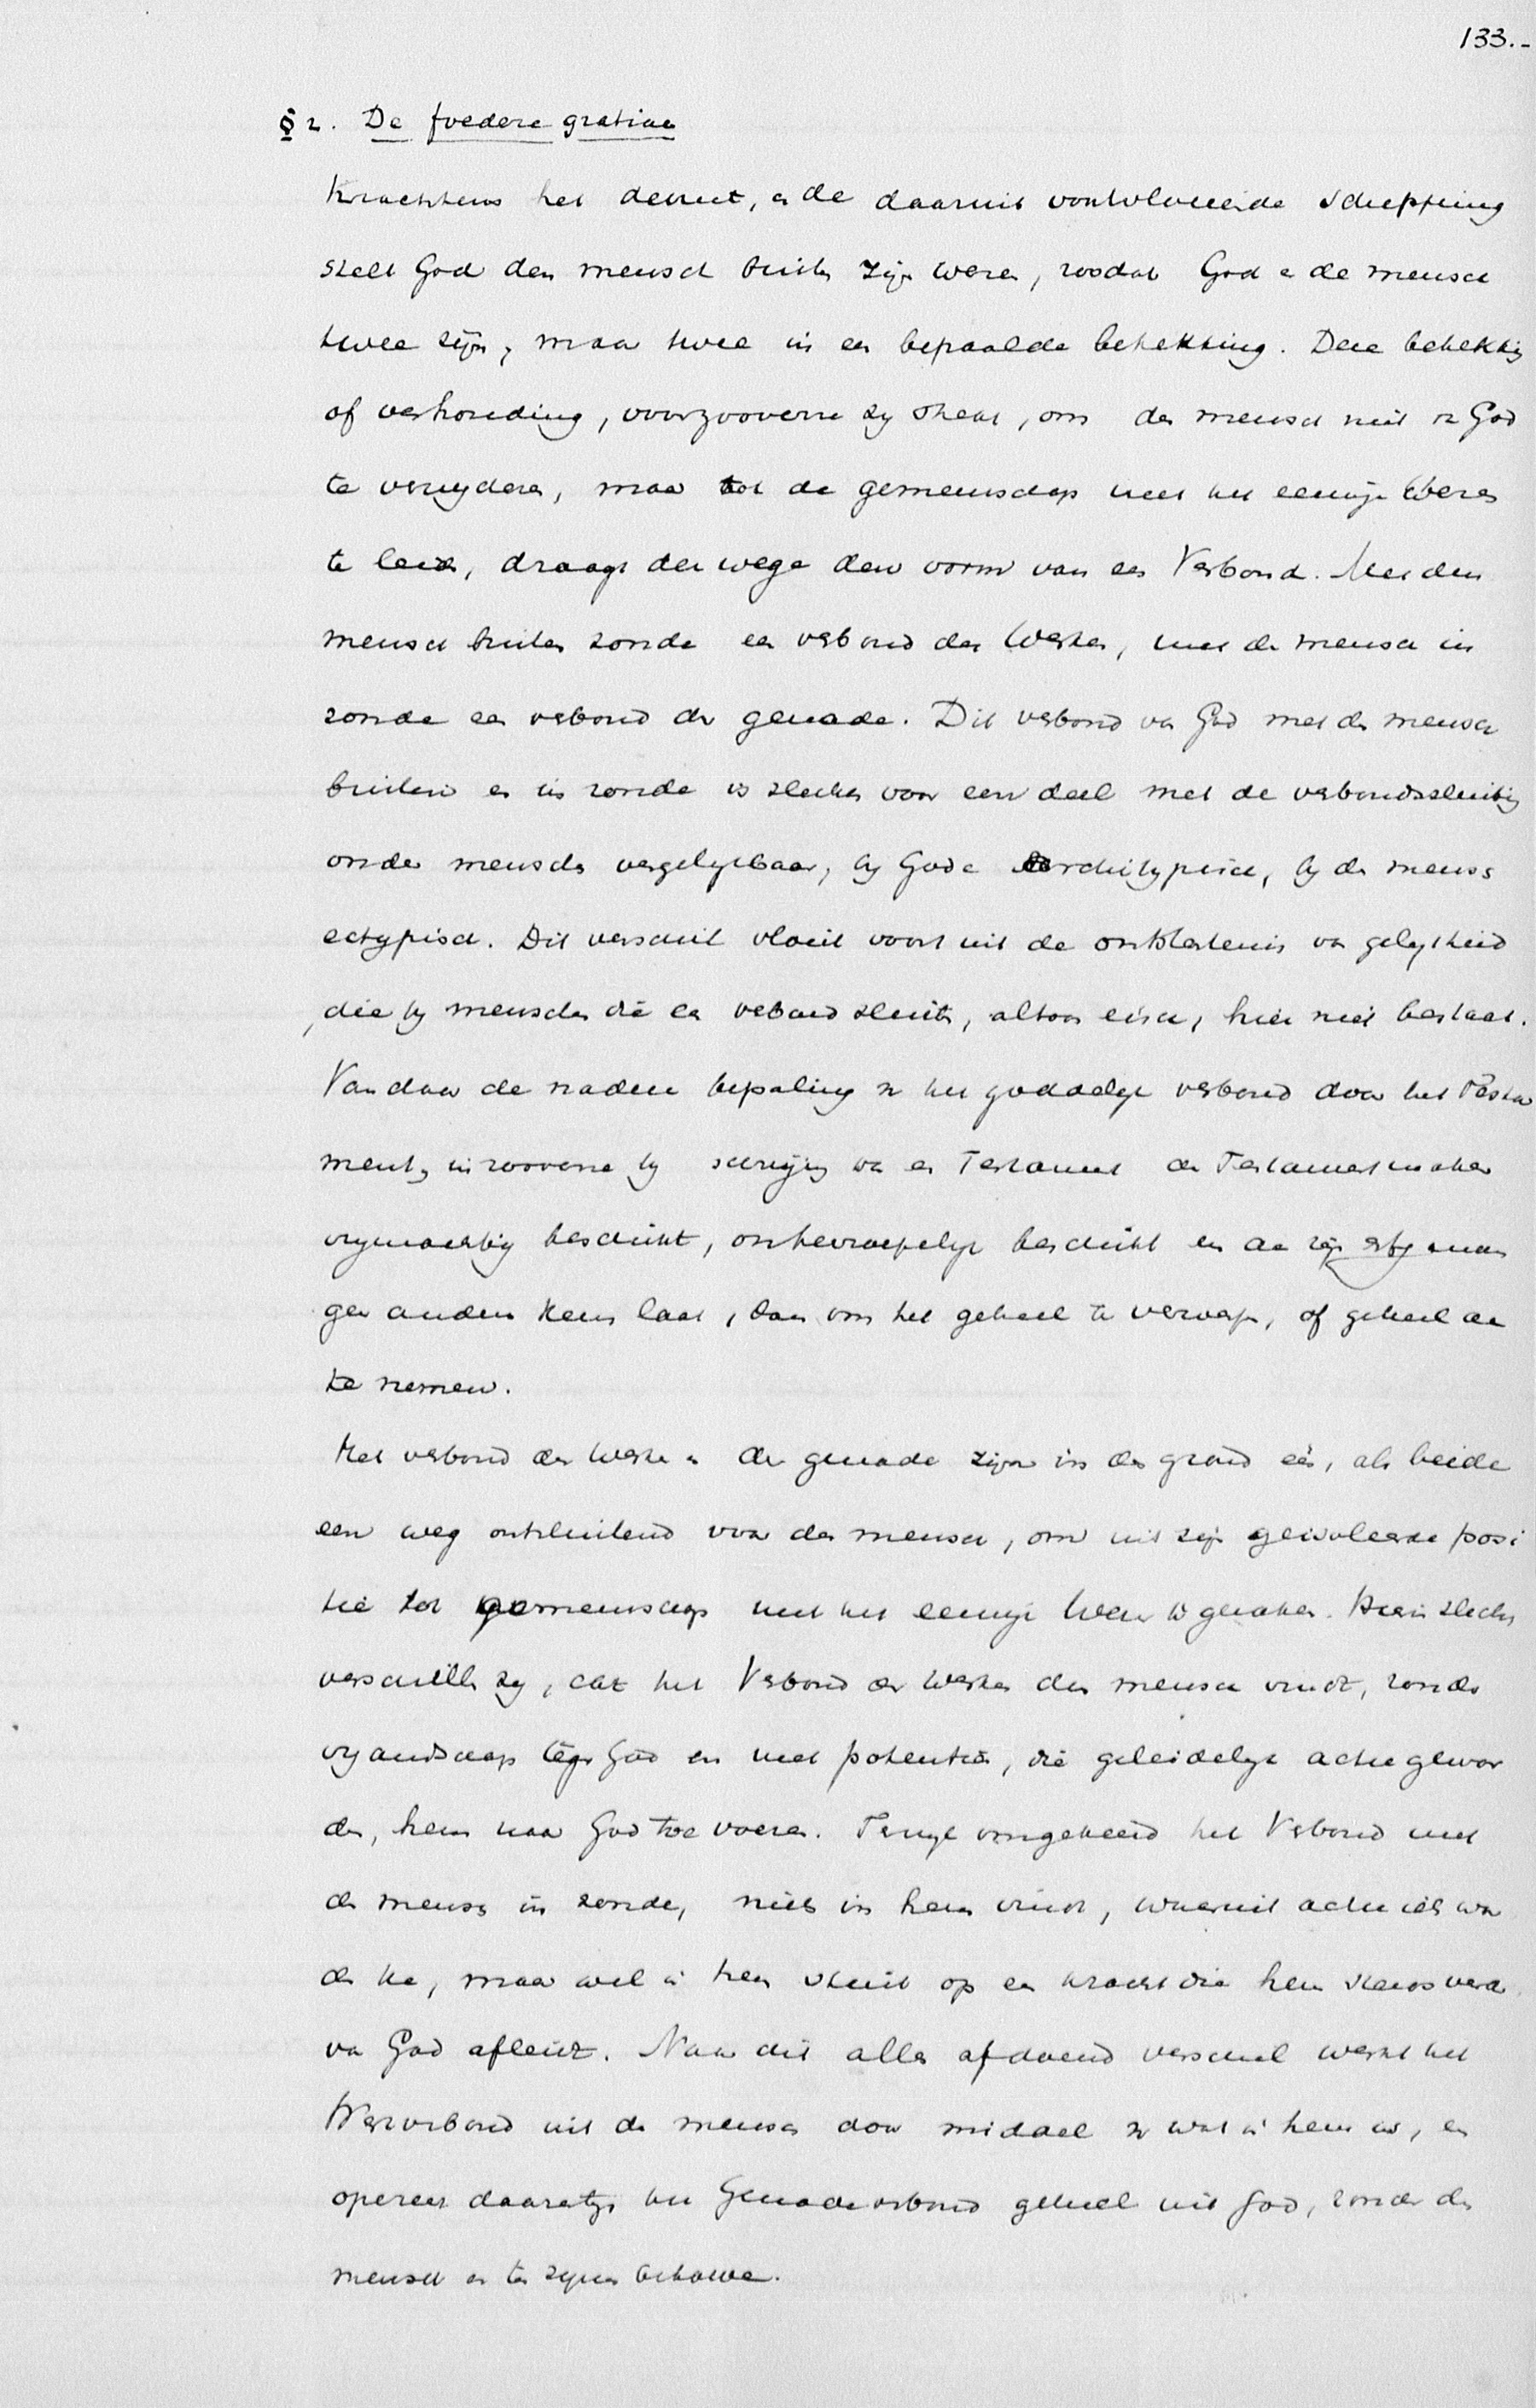 133.-
§ 2. De foedere gratiae
Krachtens het decreet, en de daaruit voortvloeiende schepping
stelt God den mensch buiten zijn Wezen, zoodat God en de mensch
twee zijn, maar twee in een bepaalde betrekking. Deze betrekking
of verhouding, voorzooverre zij strekt, om den mensch niet van God
te verwijderen, maar tot de gemeenschap met het eeuwige Wezen
te leiden, draagt deswege den vorm van een Verbond. Met den
mensch buiten zonde een verbond der Werken, met den mensch in
zonde een verbond der genade. Dit verbond van God met den mensch
buiten en in zonde is slechts voor een deel met de verbondssluiting
onder menschen vergelijkbaar, bij Gode archetypisch, bij den mensch
ectypisch. Dit verschil vloeit voort uit de ontstentenis van gelijkheid
, die bij menschen die een verbond sluiten, altoos eisch, hier niet bestaat.
Vandaar de nadere bepaling van het goddelijk verbond door het Testa
ment, inzooverre bij schrijving van een Testament de Testamentmaker
vrijmachtig beschikt, onherroepelijk beschikt en aan zijn erfgenaam
geen andere keus laat, dan om het geheel te verwerpen, of geheel aan
te nemen.
Het verbond der Werken en der genade zijn in den grond één, als beide
een weg ontsluitend voor den mensch, om uit zijn geïsoleerde posi
tie tot gemeenschap met het eeuwige Wezen te geraken. Hierin slechts
verschillen zij, dat het Verbond der Werken den mensch vindt, zonder
vijandschap tegen God en met potentiën, die geleidelijk actu gewor
den, hem naar God toe voeren. Terwijl omgekeerd het Verbond met
den mensch in zonde, niets in hem vindt, waaruit actu iets wor
den kan, maar wel in hem stuit op een kracht die hem steeds verder
van God afleidt. Naar dit alles afdoend verschil werkt het
Werkverbond uit den mensch door middel van wat in hem is, en
opereert daarentegen het Genadeverbond geheel uit God, zonder den
mensch en te zijnen behoeve.